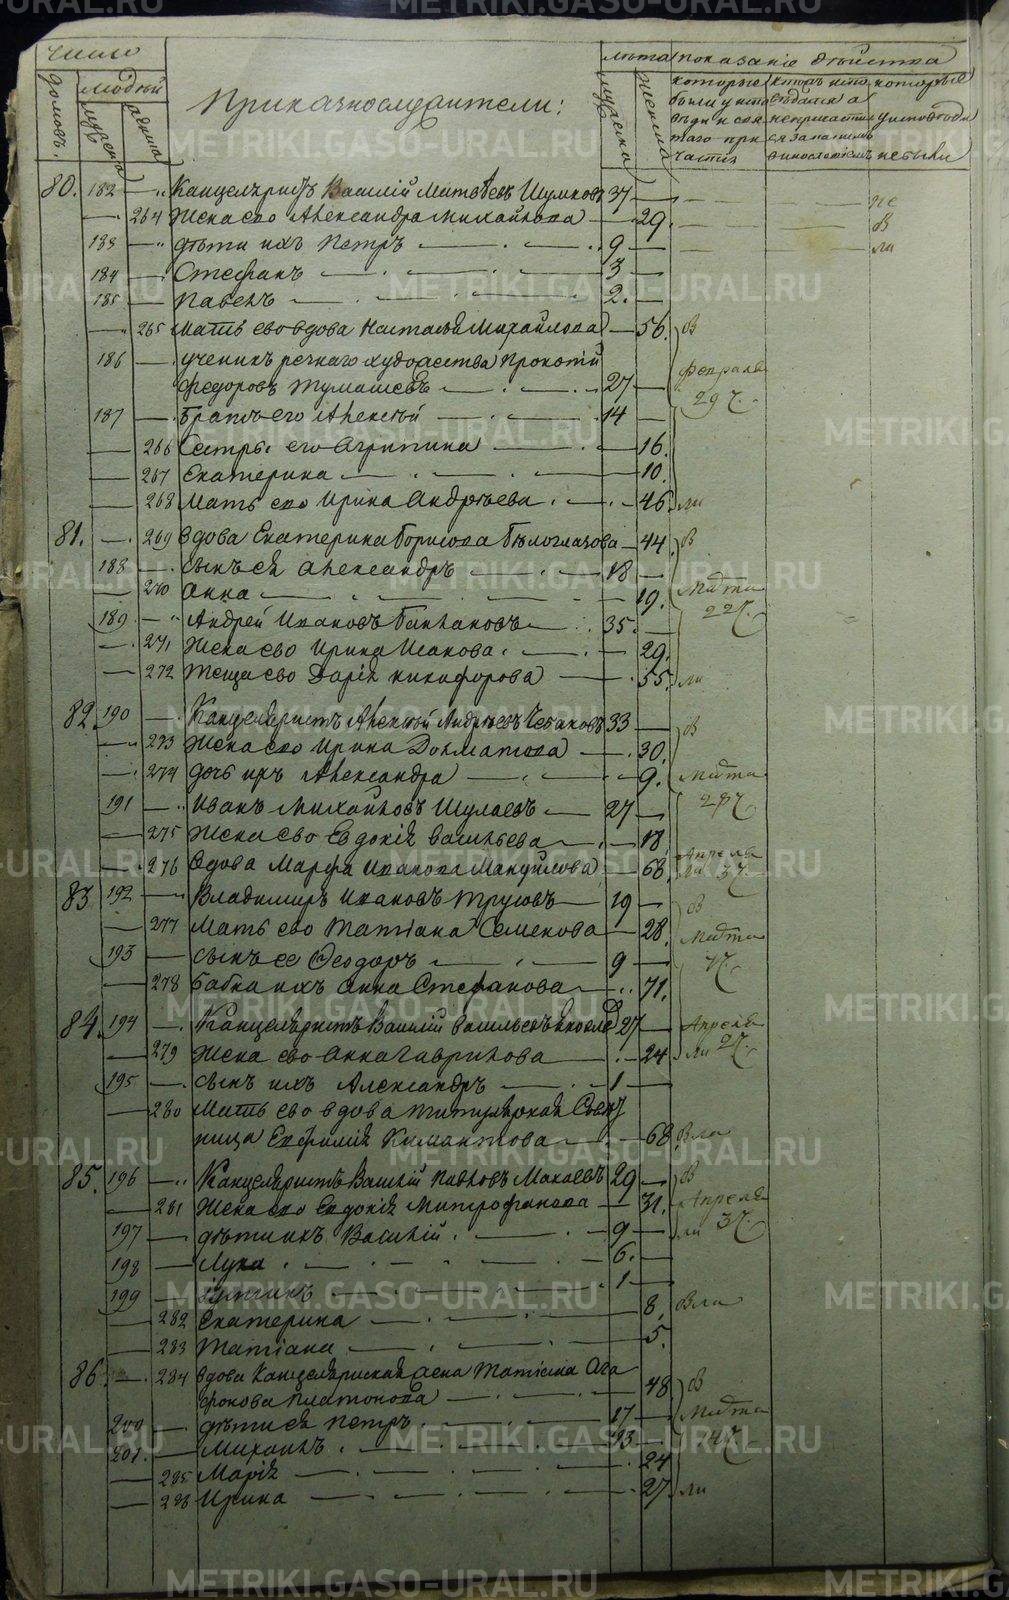 число
людей
домовъ.
мужеска
женска
Приказнослужители:
лѣта
мужеска
женска
показанiе дѣйства
которые были у исповѣди и святаго причастiя
которые исповѣдались а непричастились
которые у исповѣди небыли
80. 182 — Канцеляристъ Василiй Матвѣевъ Шумковъ 37 — не
— 264 Жена ево Александра Михайлова — 29. — в
183 — дѣти ихъ Петръ — 9 — ли
184 — Стефанъ — 3 —
185 — Павелъ — 2. —
— 265 Мать ево вдова Настасья Михайлова — 56. в
186 — ученикъ резнаго художества Прокопiй
Федоровъ Тумашевъ — 27 — февраля 29 ч.
187 — Братъ его Алексѣй — 14 —
— 266 Сестры его Агрипина — 16.
— 267 Екатерина — 10.
— 268 Мать ево Ирина Андрѣева — 46. ли
81. — 269 вдова Екатерина Борисова Бѣлоглазова — 44 в
188 — сынъ ея Александръ — 18 —
— 270 Анна — 19. Марта 22 ч.
189 — Андрей Ивановъ — 35. —
— 271 Жена ево Ирина Исакова — 29.
— 272 Теща ево Дарiя Никифорова — 55. ли
82. 190 — Канцеляристъ Алексѣй Андрѣевъ 33 — в
— 273 Жена ево Ирина Долматова — 30.
— 274 дочь ихъ Александра — 9. Марта
191 — Иванъ Михайловъ Шулаевъ — 27 — 28 ч.
— 275 Жена ево Евдокiя Васильева — 18
— 276 Вдова Марфа Иванова Мануйлова — 68. Апреля ли 3 ч.
83 192 — Владимиръ Ивановъ Трусовъ — 19 — в
— 277 Мать ево Татiана Семенова — 28. Марта
193 — сынъ ее Феодоръ — 9 — 7 ч.
— 278 Бабка ихъ Анна Стефанова — 71.
84. 194 — Канцеляристъ Василiй Васильевъ 27 — Апреля
— 279 Жена ево Анна Гаврилова — 24 ли 2 ч.
195 — сынъ ихъ Александръ — 1 —
— 280 Мать ево вдова титулярная Совѣт
ница Евфимiя — 68. в ли
85. 196 — Канцеляристъ Василiй Павловъ Макаевъ 29 — в
— 281 Жена ево Евдокiя Митрофанова — 31. Апреля
197 — дѣти ихъ Василiй — 9 — ли 3 ч.
198 — Лука — 6. —
199 — — 1 —
— 282 Екатерина — 8. в ли
— 283 Татiана — 5.
86. — 284 вдова Канцелярская жена Татiана Ага
фонова Платонова — 48 в
200 — дѣти ея Петръ — 17 — Марта
201. — Михаилъ — 13 —
— 285 Марiя — 24
— 286 Ирина — 27. ли
METRIKI.GASO-URAL.RU